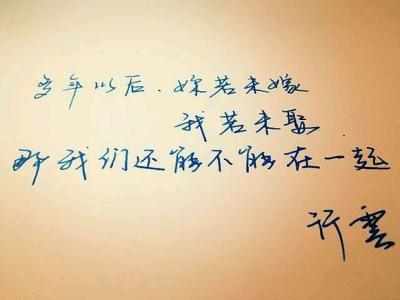 多年以后.妳若未嫁
我若未娶
那我们还能不能在一起
许云